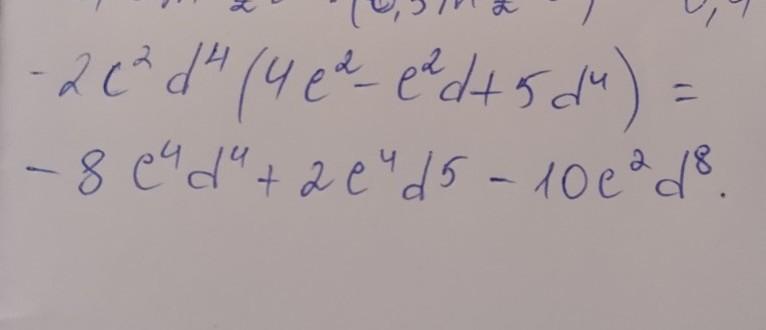 -2c² d⁴ (4c² - c²d + 5d⁴) =
- 8 c⁴d⁴ + 2c⁴d5 - 10c²d⁸.